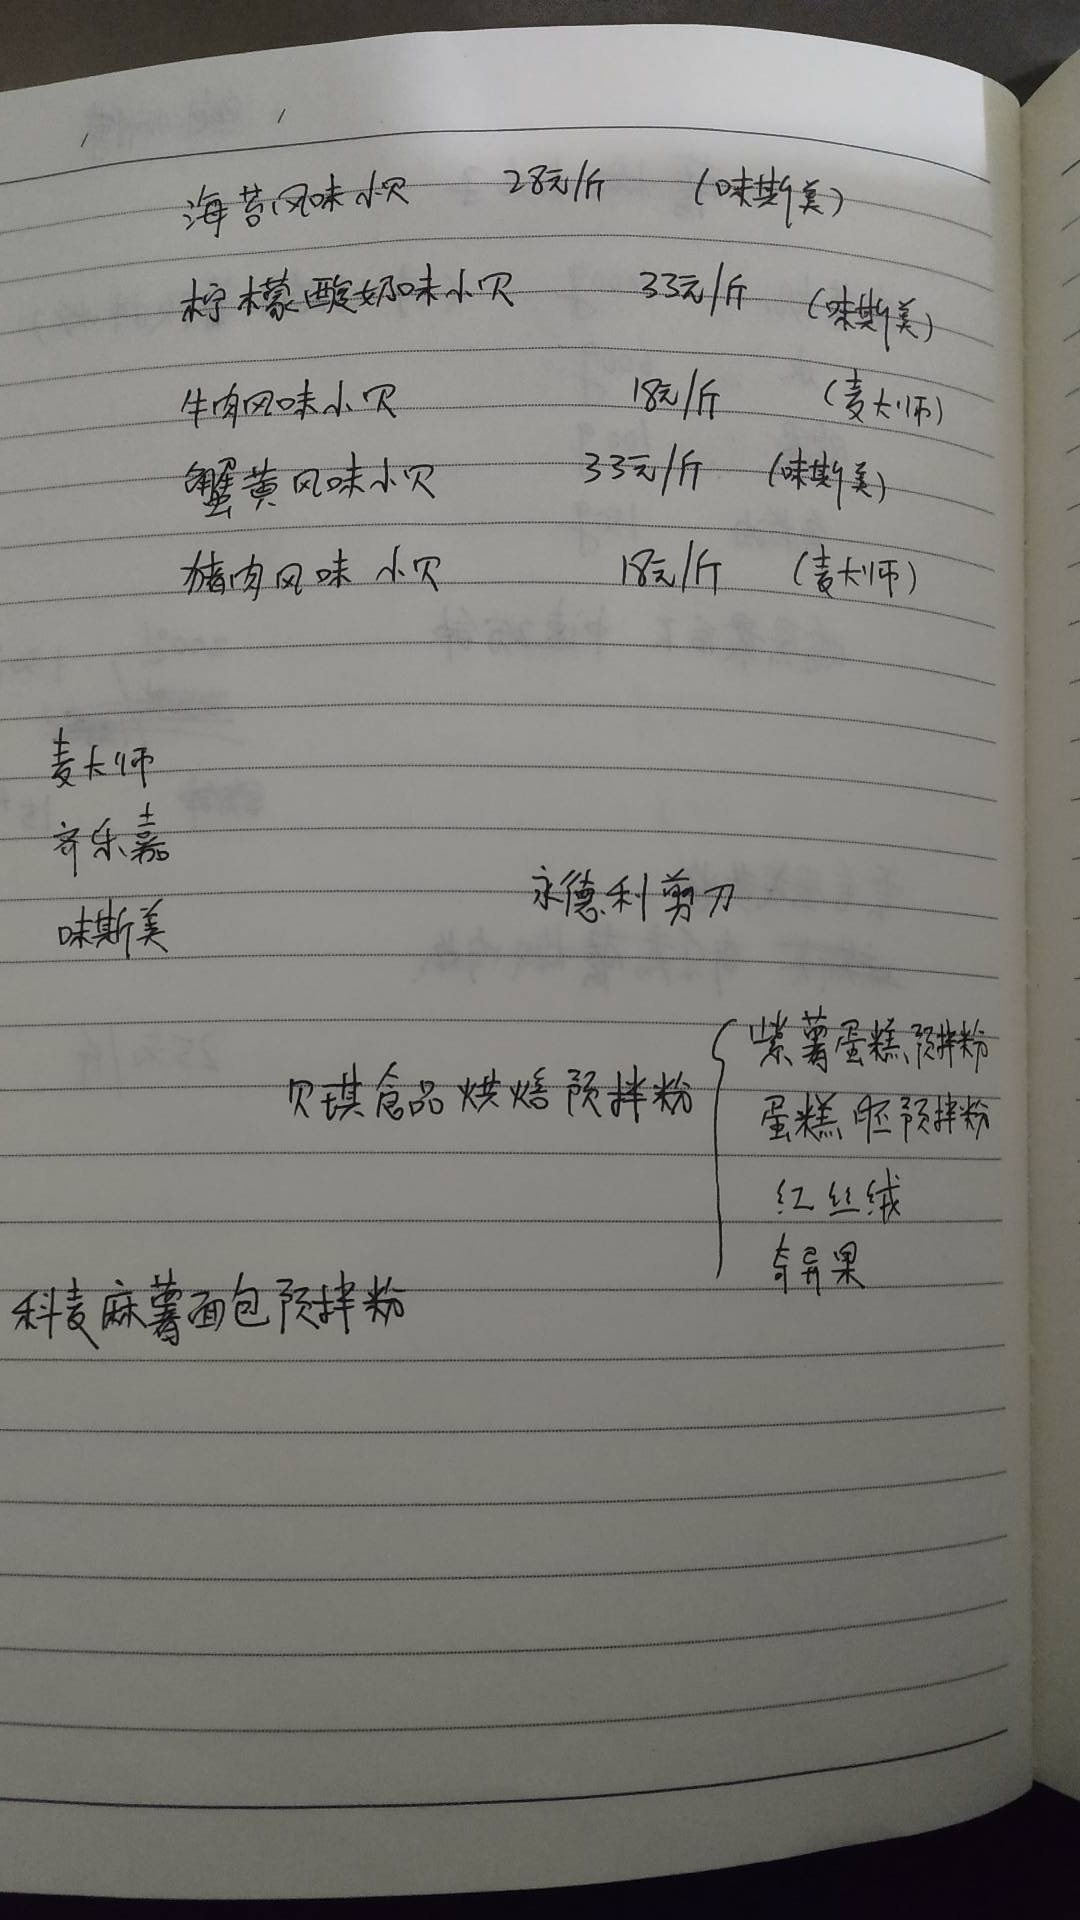 海苔风味小贝 28元/斤 (味斯美)
柠檬酸奶味小贝 33元/斤 (味斯美)
牛肉风味小贝 18元/斤 (麦大师)
蟹黄风味小贝 33元/斤 (味斯美)
猪肉风味小贝 18元/斤 (麦大师)
麦大师
齐乐嘉
味斯美
永德利剪刀
贝琪食品烘焙预拌粉
紫薯蛋糕预拌粉
蛋糕胚预拌粉
红丝绒
奇异果
科麦麻薯面包预拌粉